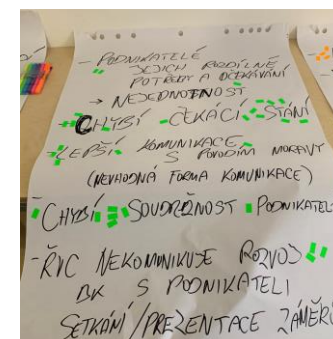 - PODNIKATELÉ
JEJICH ROZDÍLNÉ
POTŘEBY A OČEKÁVÁNÍ
→ NEJEDNOTNOST
- CHYBÍ - ČEKÁCÍ - STÁNÍ
- LEPŠÍ KOMUNIKACE
S POVODÍM MORAVY
(NEVHODNÁ FORMA KOMUNIKACE)
- CHYBÍ SOUDRŽNOST PODNIKATEL
- ŘVC NEKOMUNIKUJE ROZVOJ
BK S PODNIKATELI
SETKÁNÍ / PREZENTACE ZÁMĚRŮ